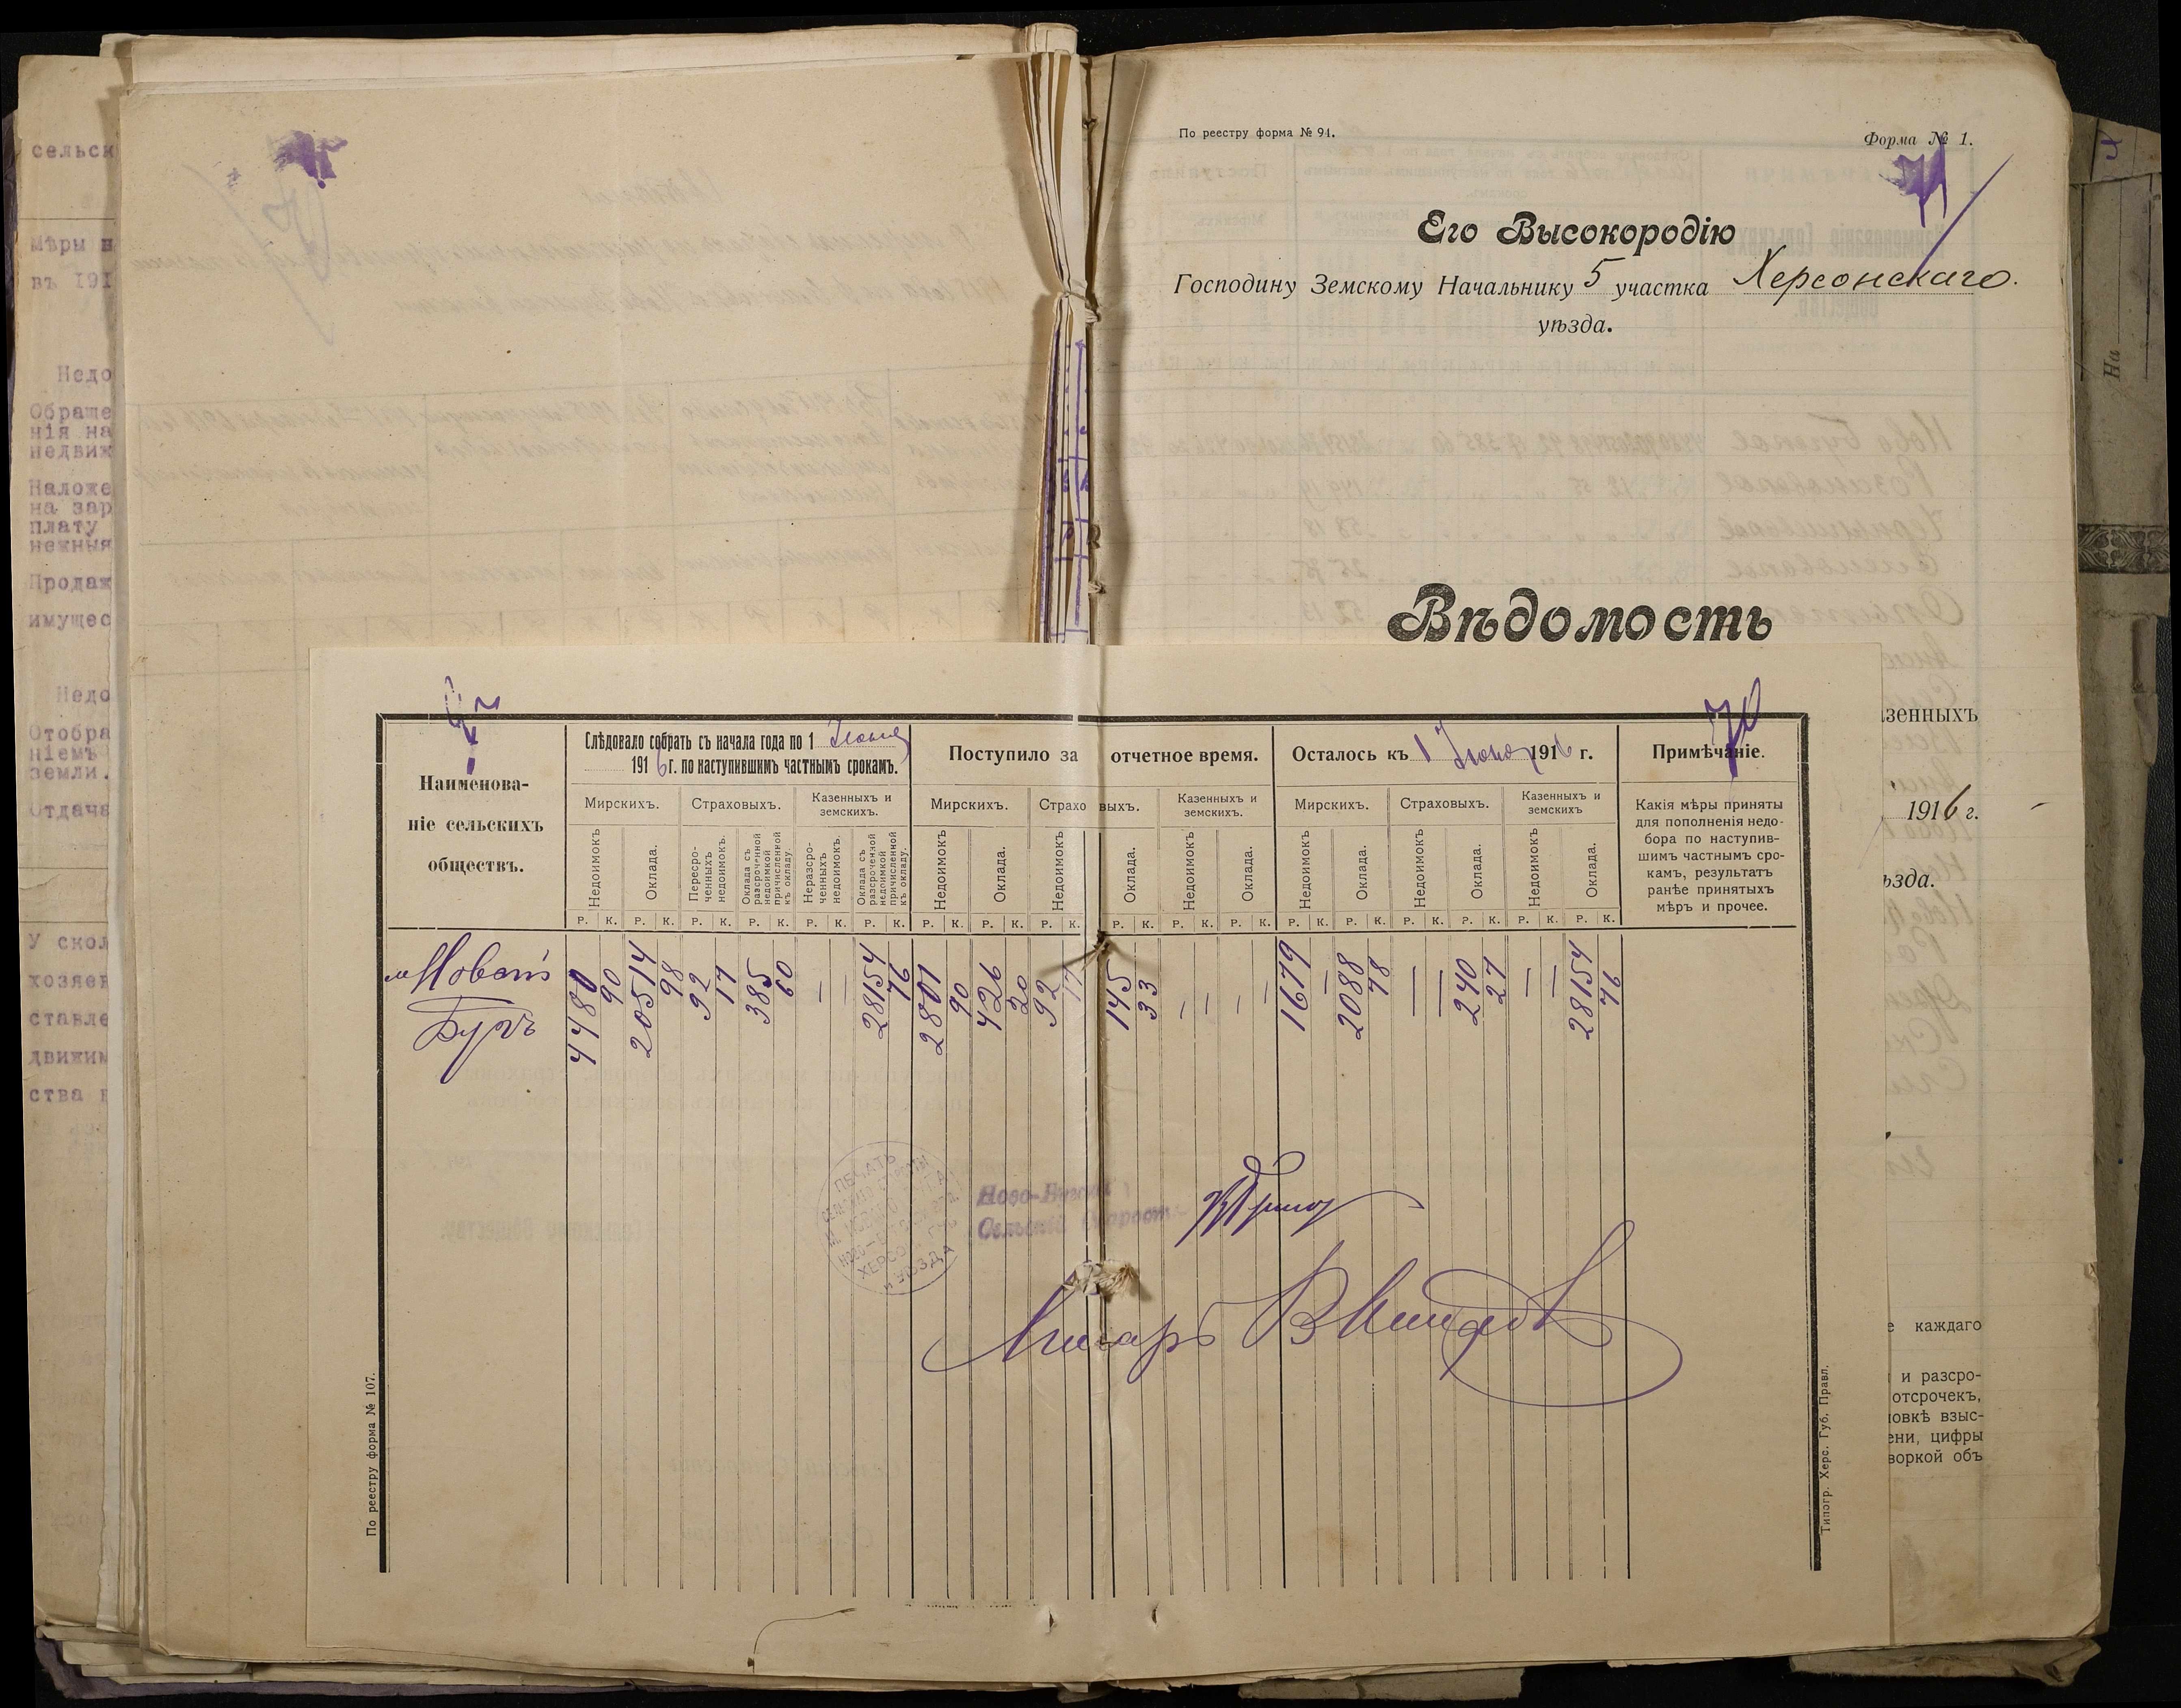 сельск
мѣры н
въ 191
Недо
Обраще
нія на
недвиж
Наложе
на зар
плату
нежныя
Продаж
имущес
Недо
Отобра
ніемъ
земли.
Отдача
У скол
хозяев
ставле
движим
ства
По реестру форма № 94.
Форма № 1.
Его Высокородію
Господину Земскому Начальнику 5 участка Херсонскаго.
уѣзда.
Вѣдомость
зенныхъ
1916 г.
ѣзда.
каждаго
и разсро-
отсрочекъ,
овкѣ взыс-
ени, цифры
воркой объ
На
70
Наименова-
ніе сельскихъ
обществъ.
Слѣдовало собрать съ начала года по 1 Іюня
1916 г. по наступившимъ частнымъ срокамъ.
Поступило за отчетное время.
Осталось къ 1 Іюня 1916 г.
Примѣчаніе.
Мирскихъ. Страховыхъ. Казенныхъ и земскихъ.
Мирскихъ. Страховыхъ. Казенныхъ и земскихъ.
Мирскихъ. Страховыхъ. Казенныхъ и земскихъ.
Недоимокъ
Оклада.
Пересро-
ченныхъ
недоимокъ.
Оклада съ
разсроченной
недоимкой
причисленной
къ окладу.
Неразсро-
ченныхъ
недоимокъ.
Оклада съ
разсроченной
недоимкой
причисленной
къ окладу.
Недоимокъ Оклада. Недоимокъ Оклада. Недоимокъ Оклада.
Недоимокъ Оклада. Недоимокъ Оклада. Недоимокъ Оклада.
Какія мѣры приняты
для пополненія недо-
бора по наступив-
шимъ частнымъ сро-
камъ, результатъ
ранѣе принятыхъ
мѣръ и прочее.
Р. К. Р. К. Р. К. Р. К. Р. К. Р. К. Р. К. Р. К. Р. К. Р. К. Р. К. Р. К. Р. К. Р. К. Р. К. Р. К. Р. К. Р. К.
м Новый
Бугъ
4480 90 20514 98 92 17 385 60 — — 28154 76 2801 90 426 20 92 17 145 33 — — — — 1679 — 2088 78 — — 240 27 — — 28154 76
ПЕЧАТЬ
ХЕРСО
УѢЗДА
Ново-Бугскій
Сельскій Староста
Писарь
По реестру форма № 107.
Типогр. Херс. Губ. Правл.